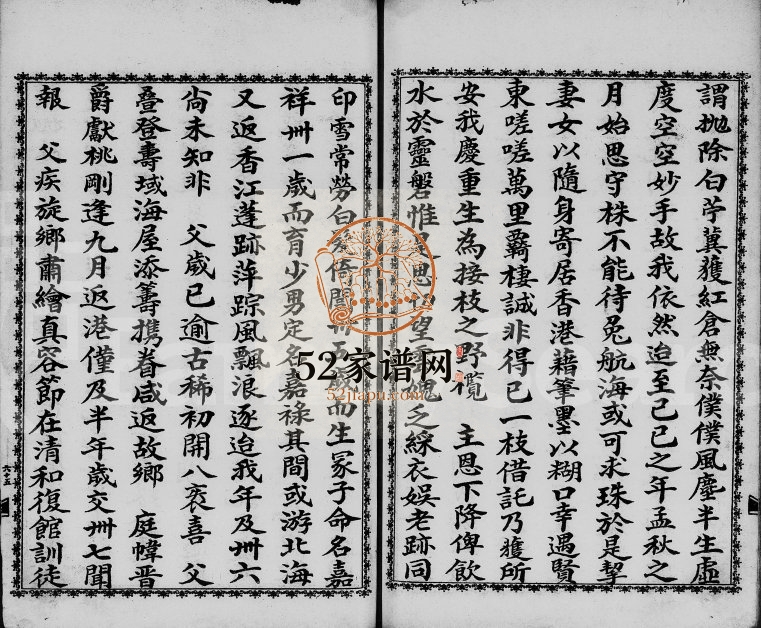 謂拋除白苧冀獲紅倉無奈僕僕風塵半生虛
度空空妙手故我依然迨至己巳之年孟秋之
月始思守株不能待兔航海或可求珠於是挈
妻女以隨身寄居香港藉筆墨以糊口幸遇賢
東嗟嗟萬里羈棲誠非得已一枝借託乃獲所
安我慶重生為接枝之野欖 主恩下降俾飲
水於靈磐惟思望愧乏綵衣娛老跡同
印雪常勞白倚閭卅五而生冢子命名嘉
祥卅一歲而育少男定名嘉祿其間或游北海
又返香江蓬跡萍踪風飄浪逐迨我年及卅六
尚未知非 父歲已逾古稀初開八袠喜 父
疊登壽域海屋添籌攜眷咸返故鄉 庭幃晋
爵獻桃剛逢九月返港僅及半年歲交卅七聞
報 父疾旋鄉肅繪真容節在清和復館訓徒
六十五
52家谱网
52jiapu.com